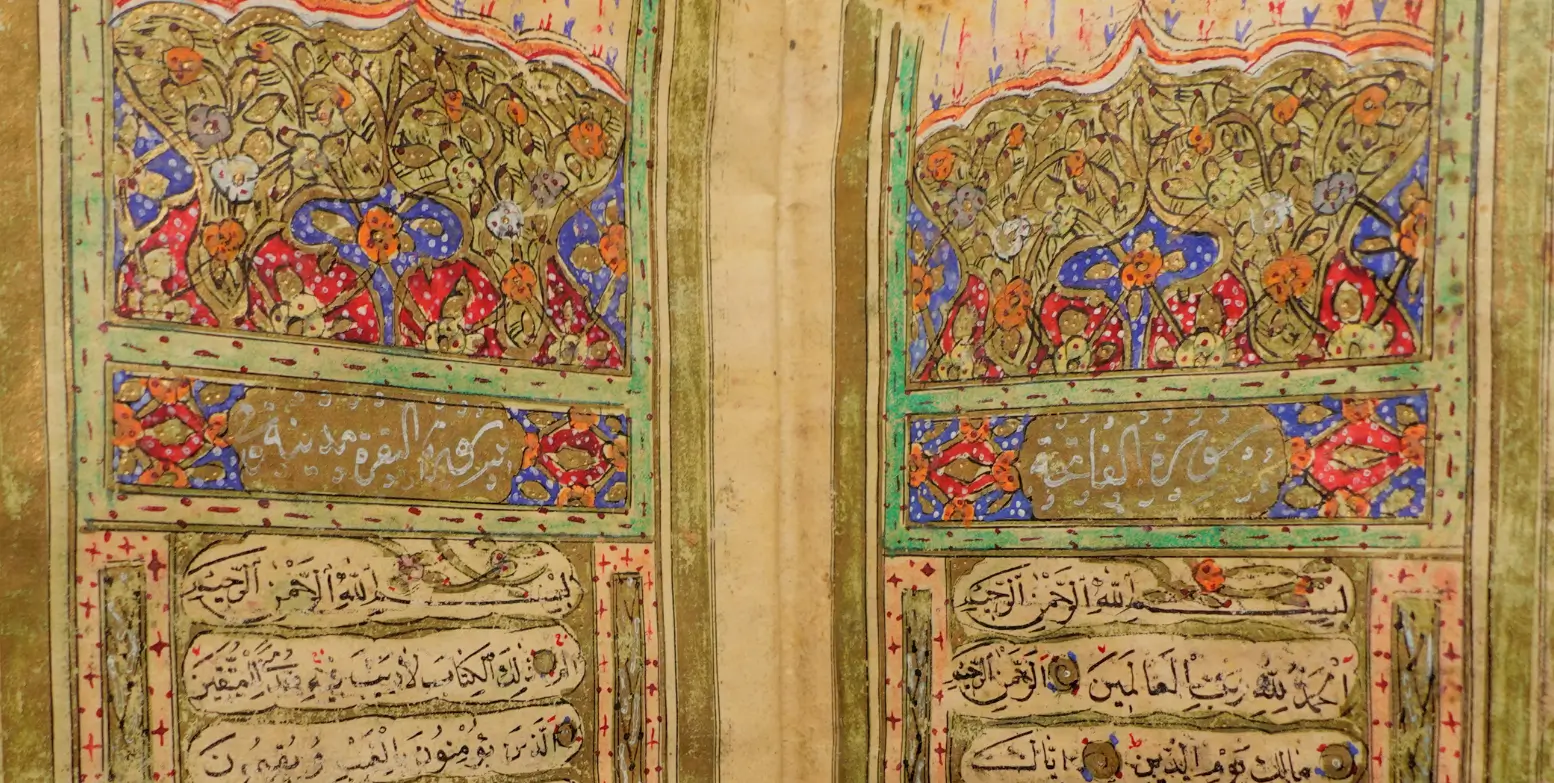 سورة الفاتحة
بسم الله الرحمن الرحيم
الحمد لله رب العالمين الرحمن الرحيم
مالك يوم الدين اياك
سورة البقرة مدينة
بسم الله الرحمن الرحيم
الم ذلك الكتاب لا ريب فيه هدى للمتقين
الذين يؤمنون بالغيب ويقيمون